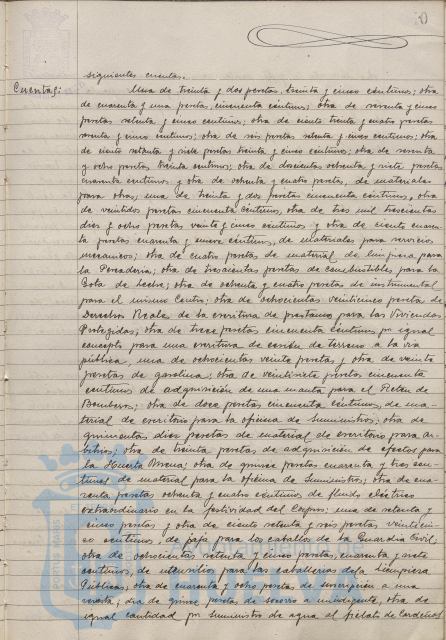 siguientes cuentas.
Cuentas:
Una de treinta y dos pesetas, treinta y cinco céntimos; otra
de cuarenta y una pesetas, cincuenta céntimos; otra de sesenta y cinco
pesetas setenta y cinco céntimos; otra de ciento treinta y cuatro pesetas
y cinco céntimos; otra de seis pesetas setenta y cinco céntimos; otra
de ciento setenta y siete pesetas treinta y cinco céntimos; otra de
y ocho pesetas treinta céntimos; otra de doscientas ochenta y siete pesetas
cuarenta céntimos y otra de ochenta y cuatro pesetas, de materiales
para obras; una de treinta y dos pesetas cincuenta céntimos, otra
de veintidos pesetas cincuenta céntimos, otra de tres mil trescientas
diez y ocho pesetas veinte y cinco céntimos y otra de ciento cuaren-
ta pesetas cuarenta y nueve céntimos, de materiales para servicios
mecanicos; otra de cuatro pesetas de material de limpieza para
la Pescaderia; otra de trescientas pesetas de combustibles para la
Gota de Leche; otra de ochenta y cuatro pesetas de instrumental
para el mismo Centro; otra de ochocientas veinticinco pesetas de
Derechos Reales de la escritura de prestamo para las Viviendas
Protegidas; otra de trece pesetas cincuenta céntimos por igual
concepto para una escritura de cesión de terreno a la via
pública, una de ochocientas veinte pesetas y otra de veinte
pesetas de gasolina; otra de veintisiete pesetas cincuenta
céntimos de adquisición de una manta para el Reten de
Bomberos; otra de doce pesetas cincuenta céntimos, de ma-
terial de escritorio para la oficina de Suministros; otra de
quinientas diez pesetas de material de escritorio para Ar-
bitrios; otra de treinta pesetas de adquisición de efectos para
la Huerta Morena; otra de quince pesetas cuarenta y tres cen-
timos de material para la oficina de Suministros; otra de cua-
renta pesetas ochenta y cuatro céntimos de fluido eléctrico
extraordinario en la festividad del Corpus; una de setenta y
cinco pesetas y otra de ciento setenta y seis pesetas veintícin-
co céntimos, de paja para los caballos de la Guardia Civil;
otra de ochocientas setenta y cinco pesetas, cuarenta y siete
centimos, de utensilios para las caballerias de la Limpieza
Públicas; otra de cuarenta y ocho pesetas de suscripción a una
revista; otra de quince pesetas de socorro a un indigente, otra de
igual cantidad por suministro de agua al